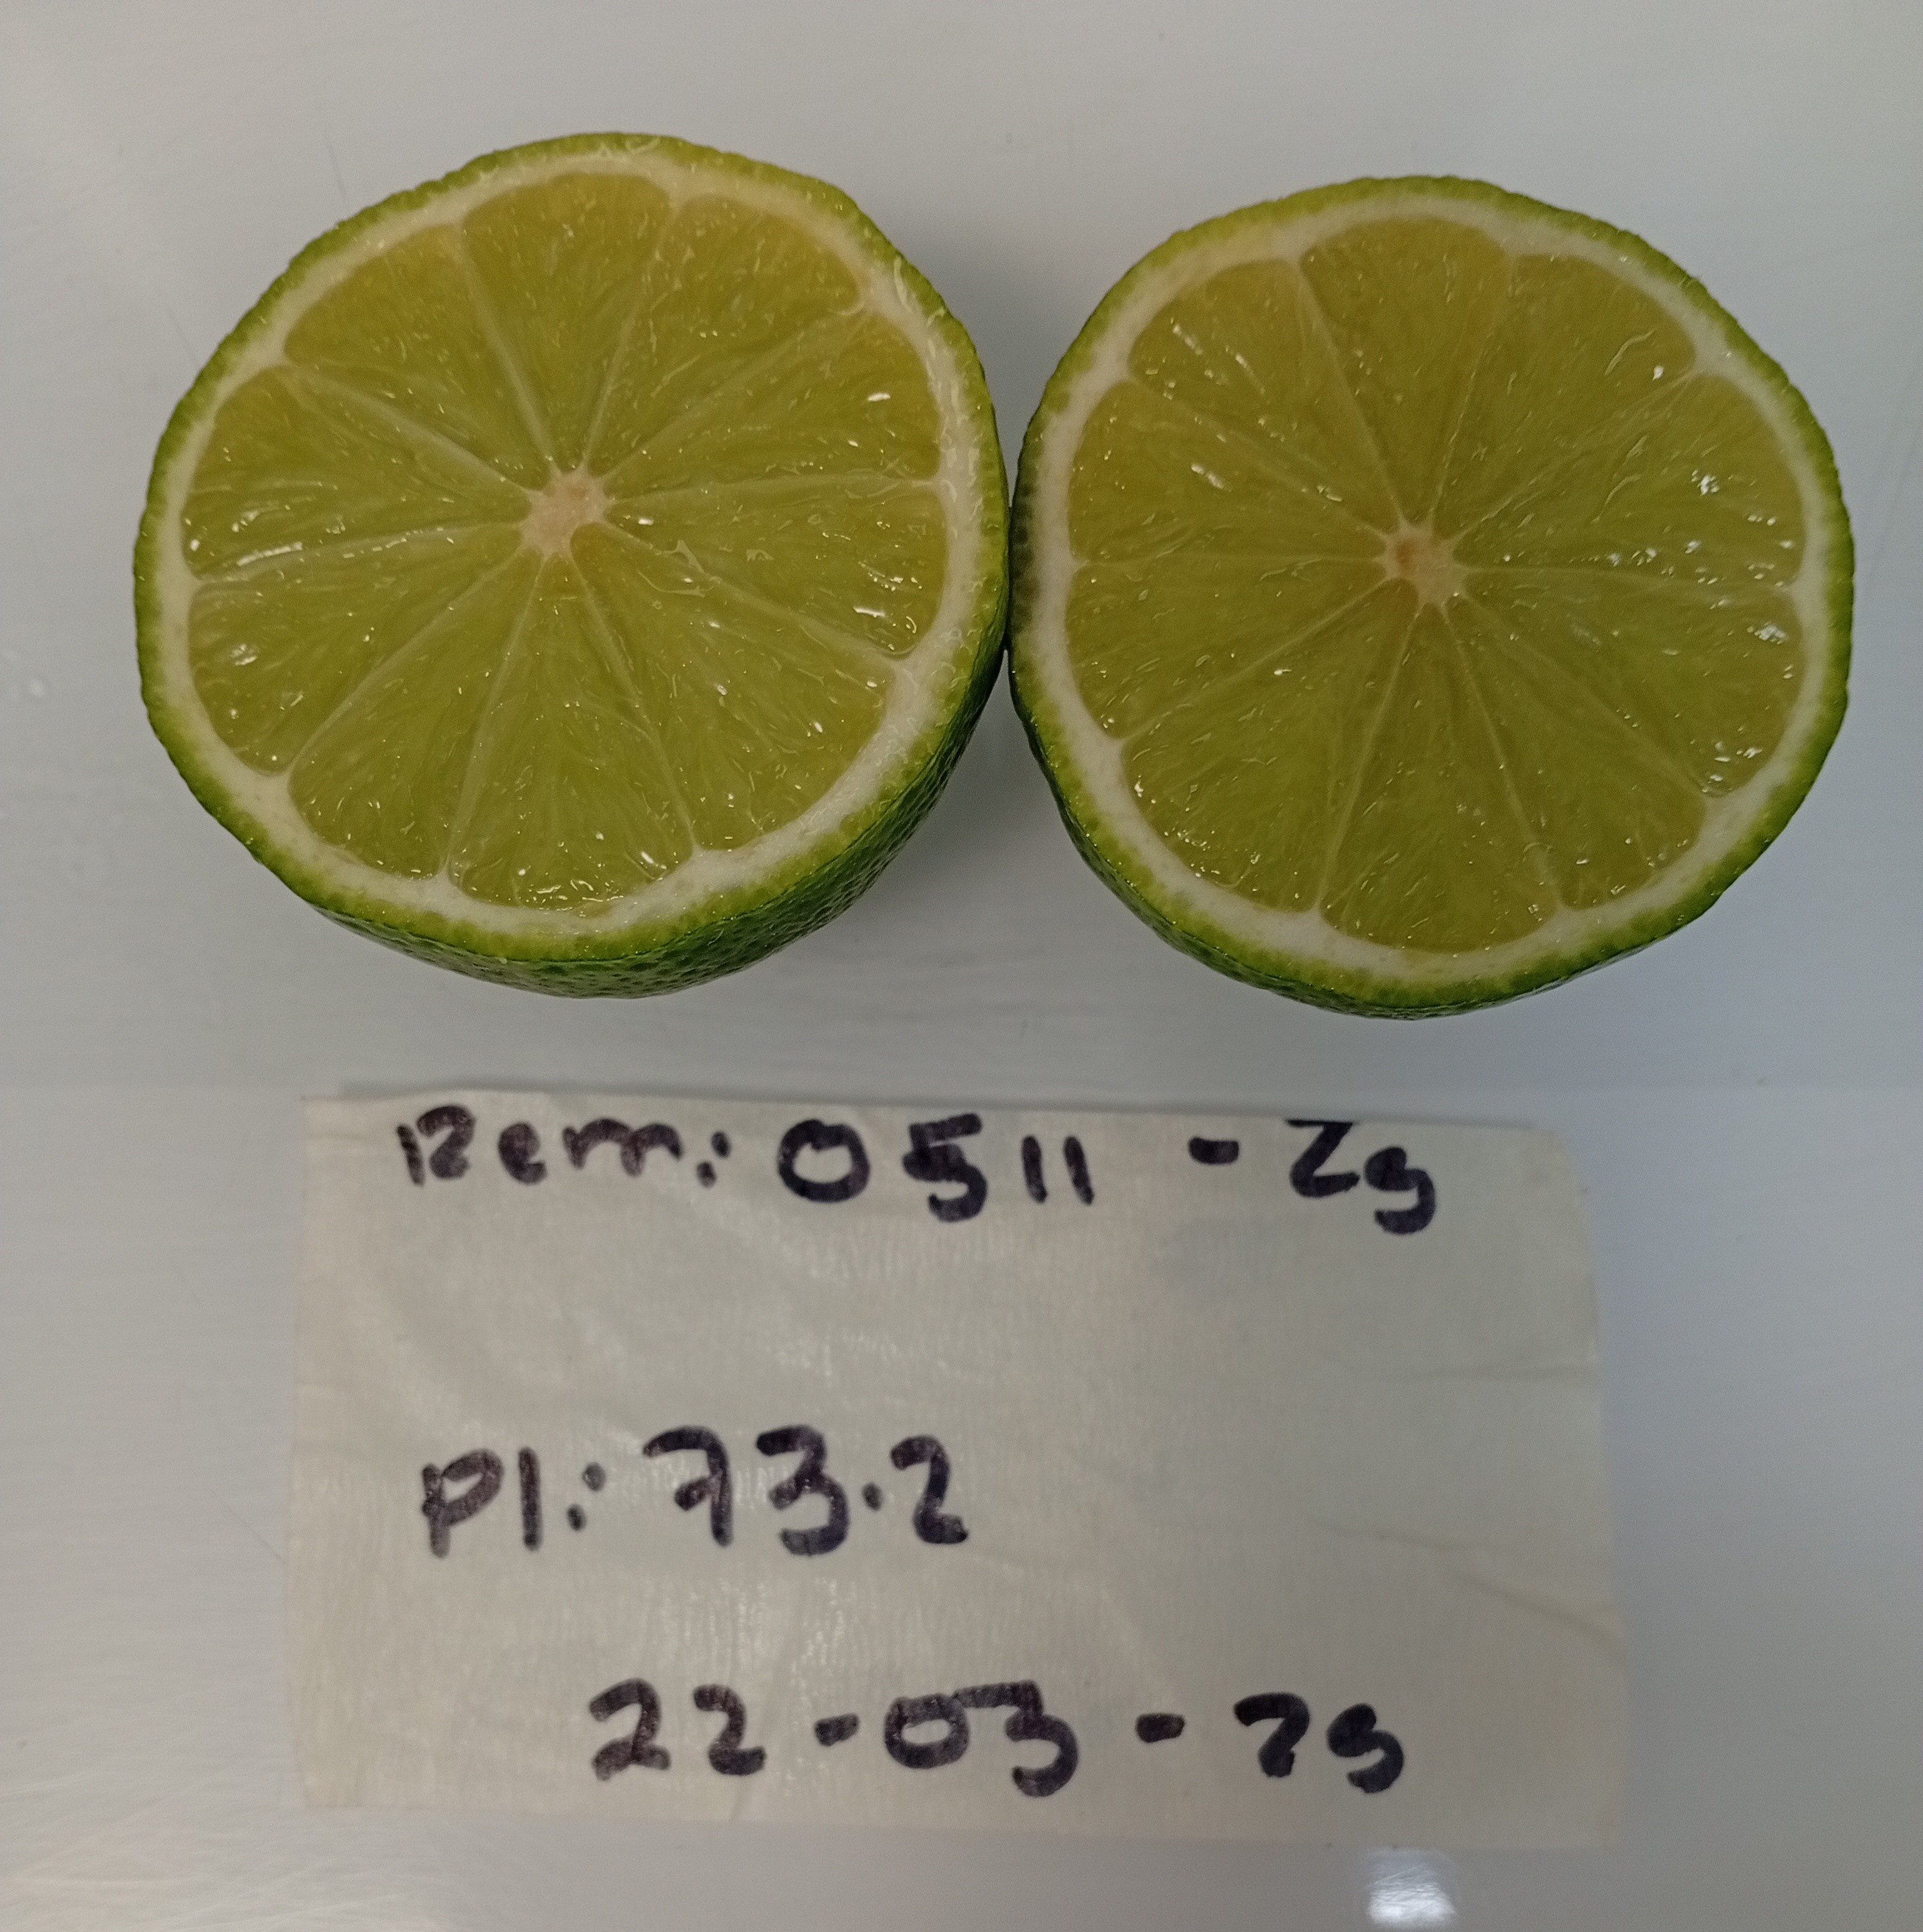 Rem: 0511 - 25
Pl: 73.2
22-03-25